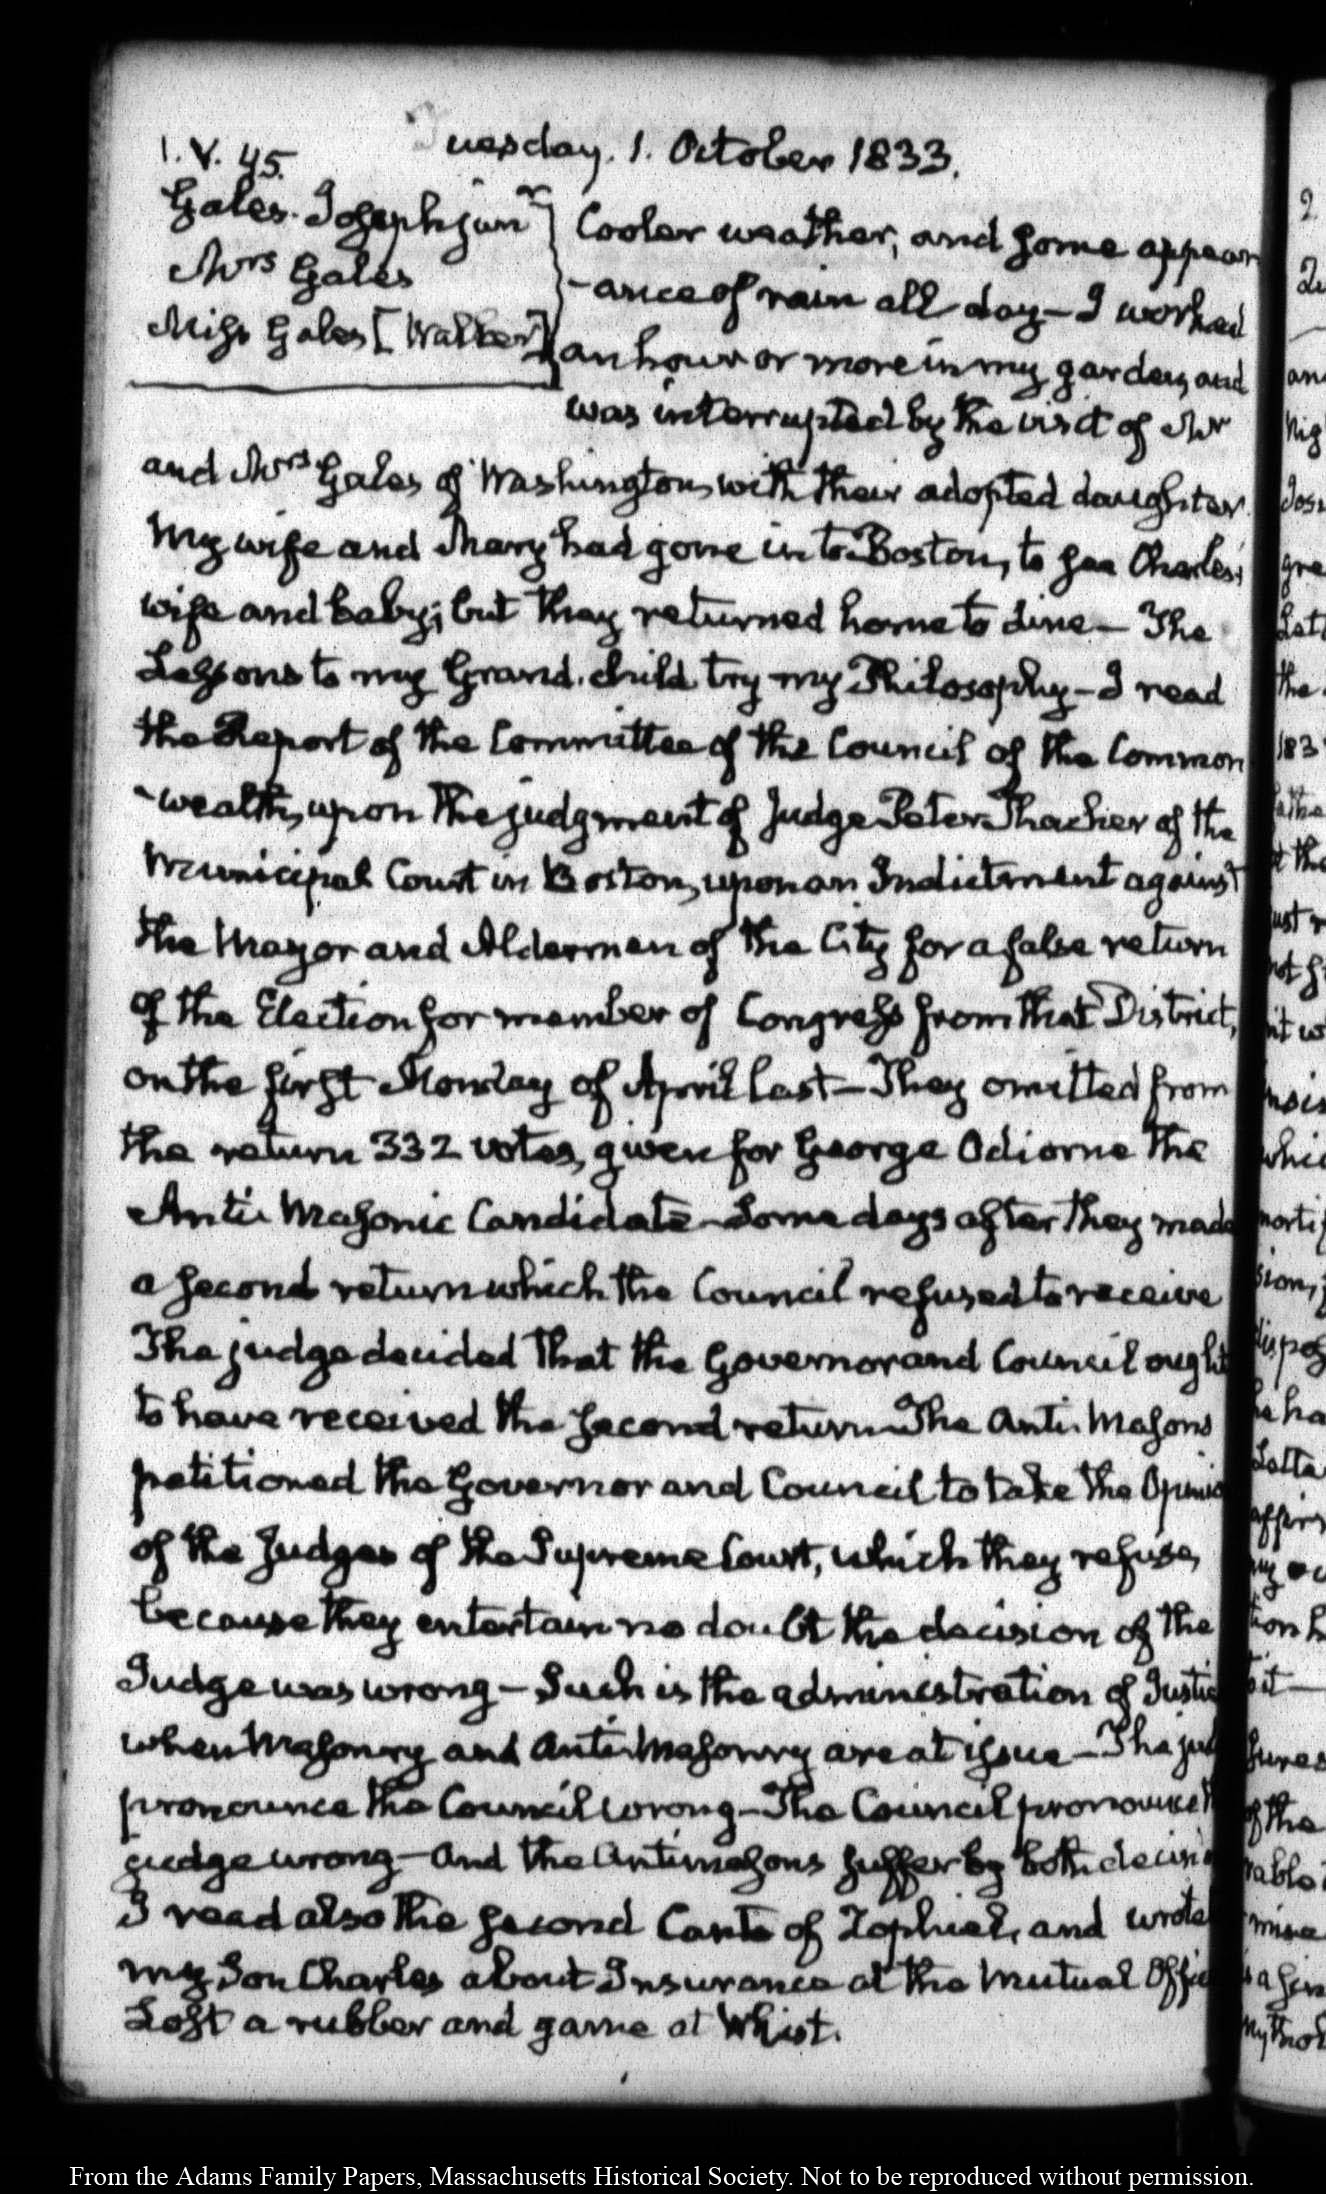 Tuesday. 1. October 1833.
1. V. 45.
Gales. Joseph junr
Mrs Gales
Miss Gales [Walker]
Cooler weather, and some appear
-ance of rain all day — I worked
an hour or more in my garden, and
was interrupted by the visit of Mr
and Mrs Gales of Washington, with their adopted daughter.
My wife and Mary had gone in to Boston, to see Charles,
wife and baby; but they returned home to dine — The
Lessons to my Grand-child try my Philosophy — I read
the Report of the Committee of the Council of the Common
-wealth, upon the judgment of Judge Peter Thacher of the
Municipal Court in Boston, upon an Indictment against
the Mayor and Aldermen of the City for a false return
of the Election for member of Congress from that District,
on the first Monday of April last — They omitted from
the return 332 votes, given for George Odiorne the
Anti-Masonic Candidate — Some days after they made
a second return which the Council refused to receive
The judge decided that the Governor and Council ought
to have received the second return — The Anti-Masons
petitioned the Governor and Council to take the Opinio
of the Judges of the Supreme Court, which they refuse,
because they entertain no doubt the decision of the
Judge was wrong — Such is the administration of Justic
when Masonry and Anti-Masonry are at issue — The jud
pronounce the Council wrong — The Council pronounce
judge wrong — and the Antimasons suffer by both decisi
I read also the second Canto of Zophiel, and wrote
my Son Charles about Insurance at the Mutual Offi
Lost a rubber and game at Whist.
2
and
Josi
gre
Lett
the
183
the
ust
which
morti
sion,
dispos
he ha
Lette
affirm
tion
it —
of the
rable
mine
From the Adams Family Papers, Massachusetts Historical Society. Not to be reproduced without permission.